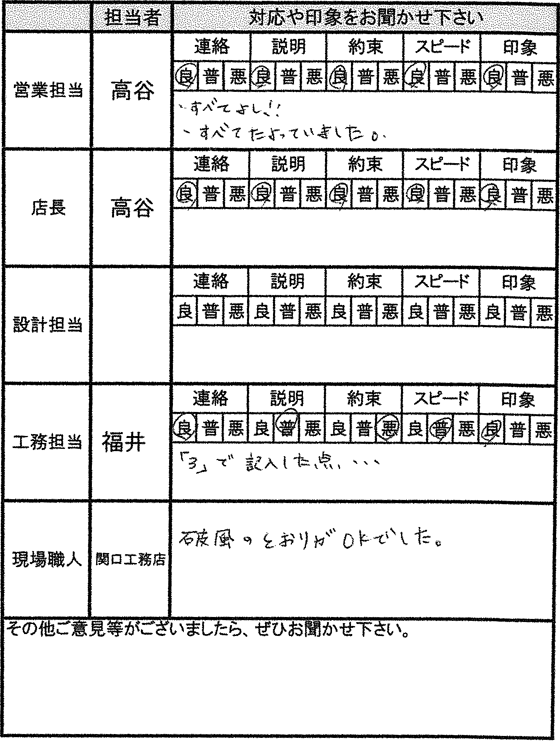 担当者 対応や印象をお聞かせ下さい
連絡 説明 約束 スピード 印象
営業担当 高谷 良 普 悪 良 普 悪 良 普 悪 良 普 悪 良 普 悪
・すべてよし!!
・すべてたよっていました。
連絡 説明 約束 スピード 印象
店長 高谷 良 普 悪 良 普 悪 良 普 悪 良 普 悪 良 普 悪
連絡 説明 約束 スピード 印象
設計担当 良 普 悪 良 普 悪 良 普 悪 良 普 悪 良 普 悪
連絡 説明 約束 スピード 印象
工務担当 福井 良 普 悪 良 普 悪 良 普 悪 良 普 悪 良 普 悪
「3」で記入した点、・・・
現場職人 関口工務店 破風のとおりがOKでした。
その他ご意見等がございましたら、ぜひお聞かせ下さい。